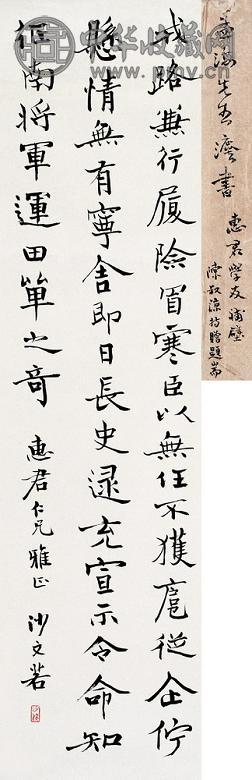 中华收藏网
孟海先生
書
惠君學友補壁
陳叔諒持贈題耑
戎路兼行履險冒寒臣以無任不獲扈從企佇
懸情無有寧舍即日長史逯充宣示令命知
征南將軍運田單之奇 惠君仁兄雅正 沙文若